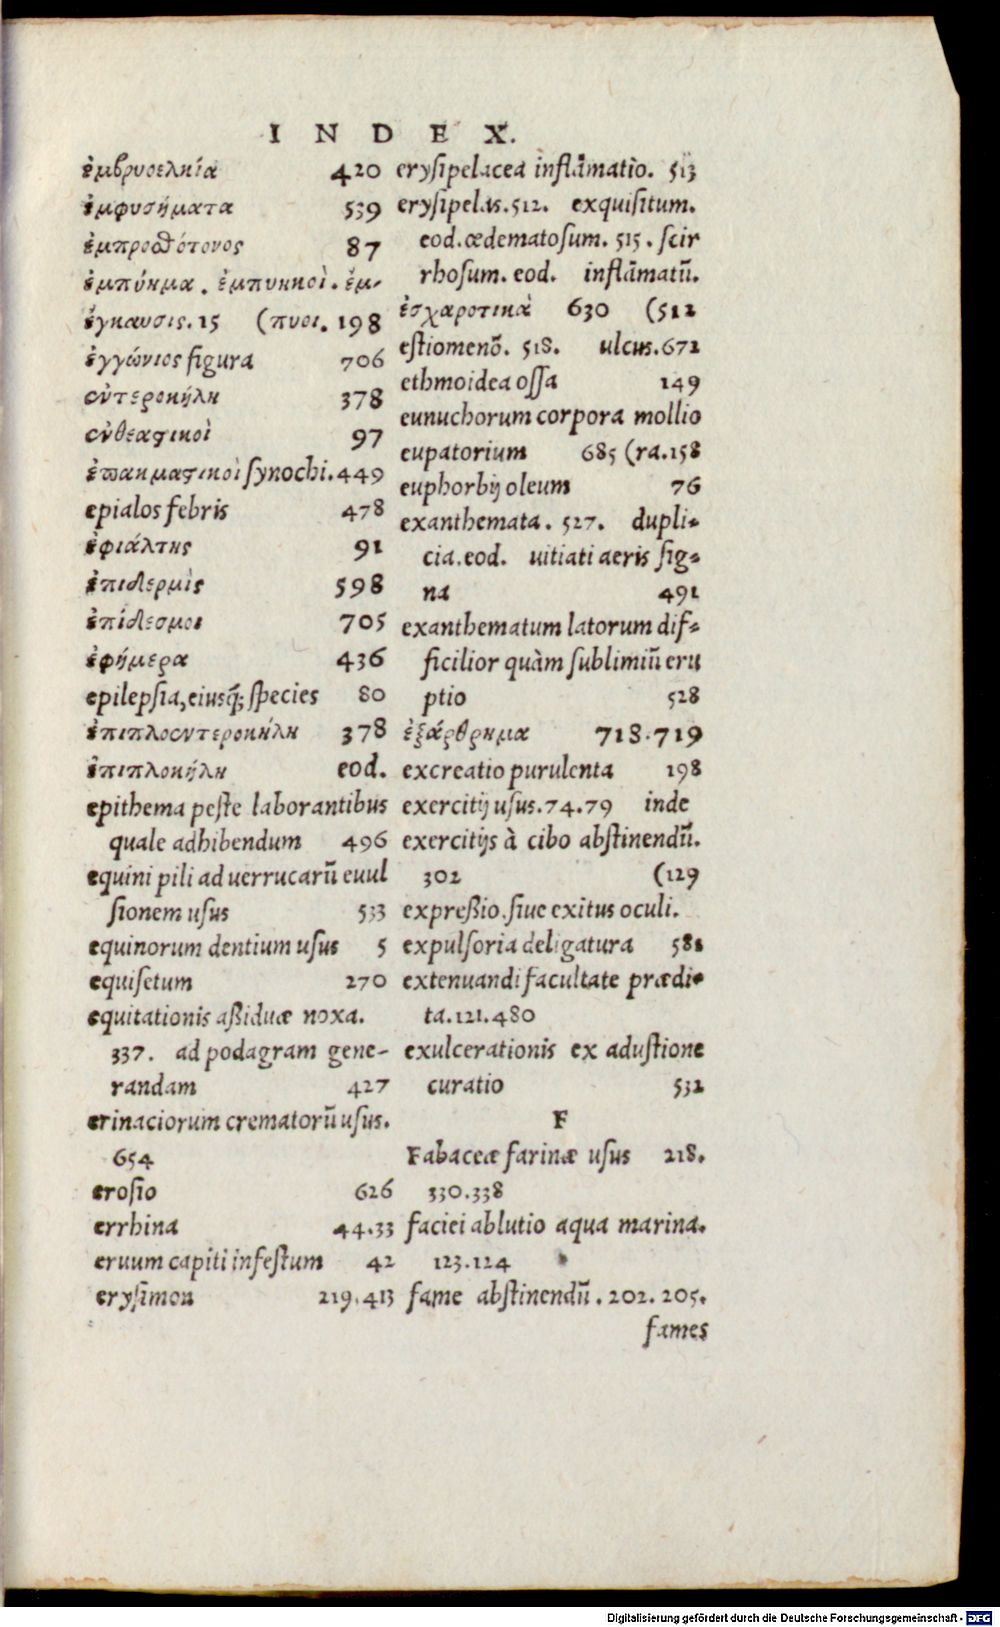 INDEX.
ἐμβρυοελκία 420
ἐμφυσήματα 539
ἐμπροσθότονος 87
ἐμπύημα. ἐμπυικοὶ. ἐμ-
ἔγκαυσις. 15 (πυοι. 198
ἐγγώνιος figura 706
ἐντεροκήλη 378
ἐνθεαστικοὶ 97
ἐπακμαστικοὶ synochi. 449
epialos febris 478
ἐφιάλτης 91
ἐπιδερμὶς 598
ἐπίδεσμοι 705
ἐφήμερα 436
epilepsia, eiusq́; species 80
ἐπιπλοεντεροκήλη 378
ἐπιπλοκήλη eod.
epithema peste laborantibus
quale adhibendum 496
equini pili ad uerrucarū euul
sionem usus 533
equinorum dentium usus 5
equisetum 270
equitationis aßiduæ noxa.
337. ad podagram gene-
randam 427
erinaciorum crematorū usus.
654
erosio 626
errhina 44.33
eruum capiti infestum 42
erysimon 219.413
erysipelacea inflāmatio. 513
erysipelas. 512. exquisitum.
eod. œdematosum. 515. scir
rhosum. eod. inflāmatū.
ἐσχαροτικὰ 630 (512
estiomenō. 518. ulcus. 672
ethmoidea ossa 149
eunuchorum corpora mollio
eupatorium 685 (ra. 158
euphorbij oleum 76
exanthemata. 527. dupli-
cia. eod. uitiati aeris sig-
na 491
exanthematum latorum dif-
ficilior quàm sublimiū eru
ptio 528
ἐξάρθρημα 718.719
excreatio purulenta 198
exercitij usus. 74.79 inde
exercitijs à cibo abstinendū.
302 (129
expreßio, siue exitus oculi.
expulsoria deligatura 581
extenuandi facultate prædi-
ta. 121.480
exulcerationis ex adustione
curatio 532
F
Fabaceæ farinæ usus 218.
330.338
faciei ablutio aqua marina.
123.124
fame abstinendū. 202. 205.
fames
Digitalisierung gefördert durch die Deutsche Forschungsgemeinschaft - DFG